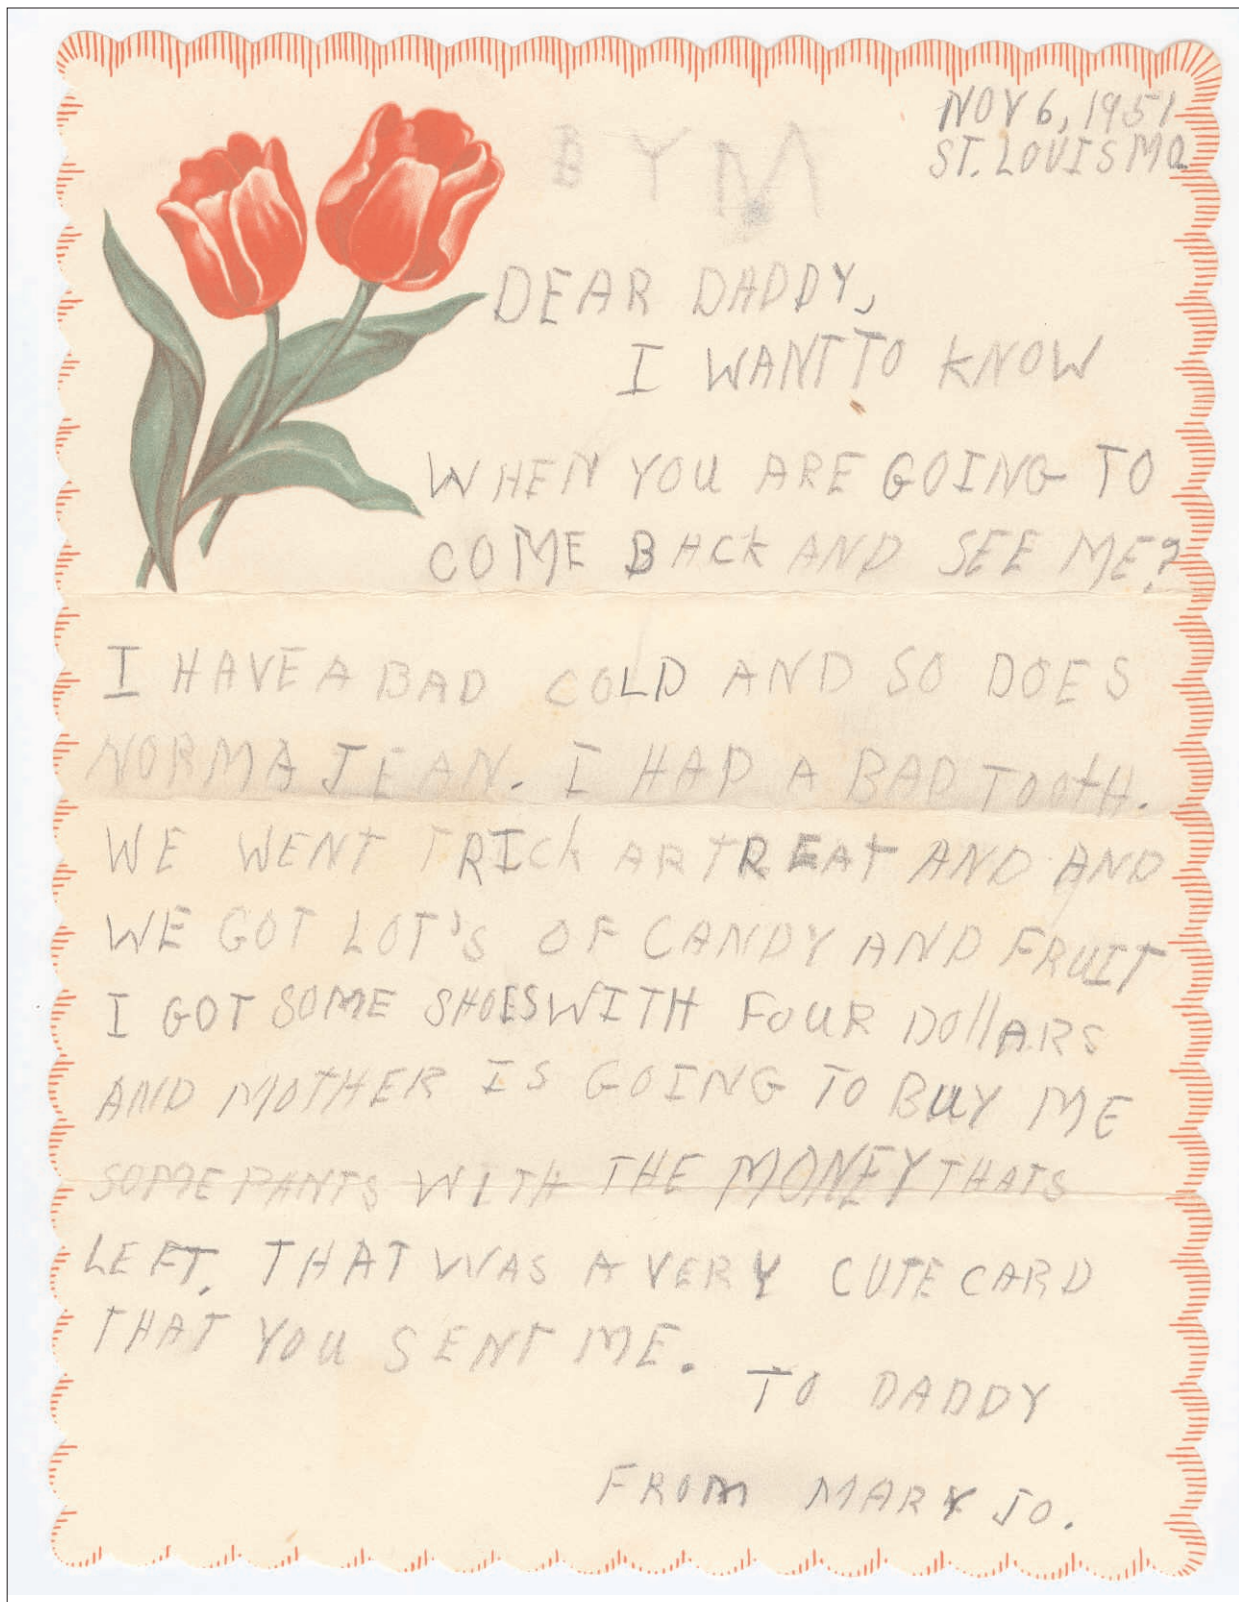 NOV 6, 1951
ST. LOUIS MO
B Y M
DEAR DADDY,
I WANT TO KNOW
WHEN YOU ARE GOING TO
COME BACK AND SEE ME?
I HAVE A BAD COLD AND SO DOES
NORMA JEAN. I HAD A BAD TOOTH.
WE WENT TRICK AR TREAT AND AND
WE GOT LOT'S OF CANDY AND FRUIT
I GOT SOME SHOES WITH FOUR DOllARS
AND MOTHER IS GOING TO BUY ME
SOME PANTS WITH THE MONEY THATS
LEFT. THAT WAS A VERY CUTE CARD
THAT YOU SENT ME.
TO DADDY
FROM MARY JO.